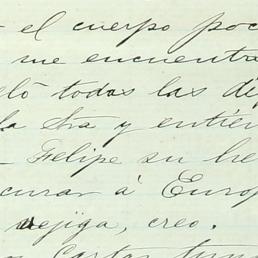 el cuerpo poc
me encuentra
eló todas las de
la Sra y entién
- Felipe su he
curar á Europ
vejiga, creo.